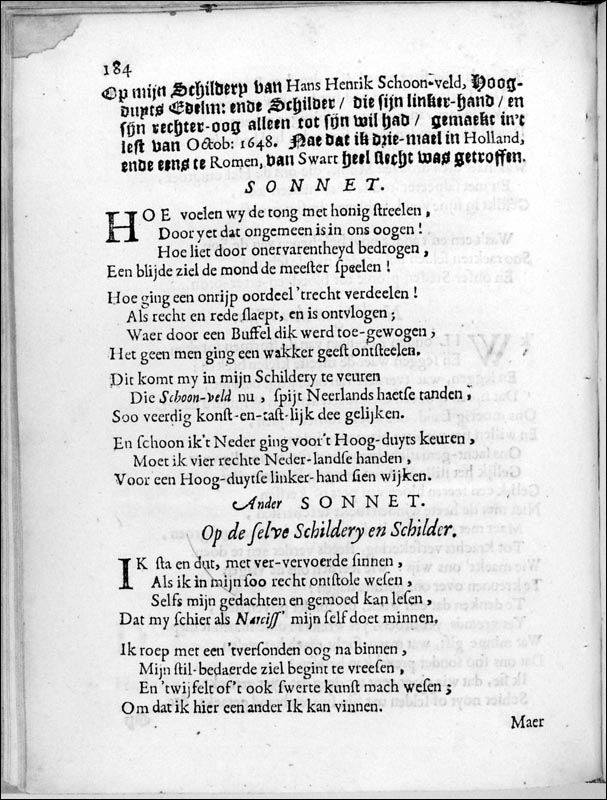 184
Op mijn Schildery van Hans Henrik Schoon-veld, Hoog-
duyts Edelm: ende Schilder / die sijn linker-hand / en
sijn rechter-oog alleen tot sijn wil had / gemaekt in't
lest van Octob: 1648. Nae dat ik drie-mael in Holland,
ende eens te Romen, van Swart heel slecht was getroffen.
SONNET.
HOE voelen wy de tong met honig streelen,
Door yet dat ongemeen is in ons oogen!
Hoe liet door onervarentheyd bedrogen,
Een blijde ziel de mond de meester speelen!
Hoe ging een onrijp oordeel 'trecht verdeelen!
Als recht en rede slaept, en is ontvlogen;
Waer door een Buffel dik werd toe-gewogen,
Het geen men ging een wakker geest ontsteelen.
Dit komt my in mijn Schildery te veuren
Die Schoon-veld nu, spijt Neerlands haetse tanden,
Soo veerdig konst-en-tast-lijk dee gelijken.
En schoon ik't Neder ging voor't Hoog-duyts keuren,
Moet ik vier rechte Neder-landse handen,
Voor een Hoog-duytse linker-hand sien wijken.
Ander SONNET.
Op de selve Schildery en Schilder.
IK sta en dut, met ver-vervoerde sinnen,
Als ik in mijn soo recht ontstole wesen,
Selfs mijn gedachten en gemoed kan lesen,
Dat my schier als Narciss' mijn self doet minnen.
Ik roep met een 'tversonden oog na binnen,
Mijn stil-bedaerde ziel begint te vreesen,
En 'twijfelt of't ook swerte kunst mach wesen;
Om dat ik hier een ander Ik kan vinnen.
Maer